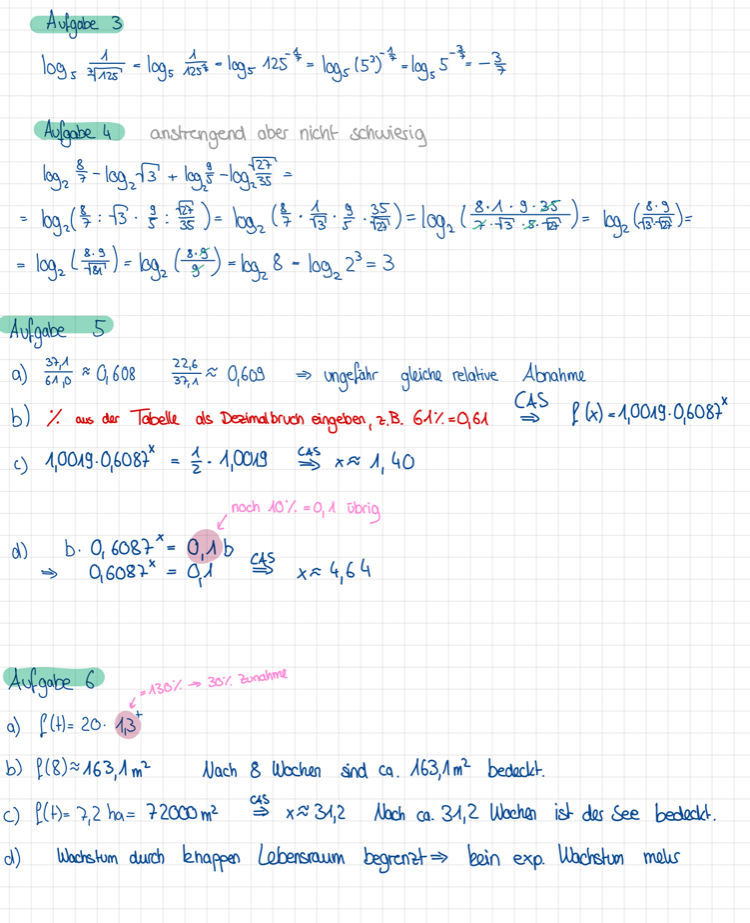 Aufgabe 3
log₅ 1/⁷√125 = log₅ 1/125^(1/7) = log₅ 125^(-1/7) = log₅ (5³)^(-1/7) = log₅ 5^(-3/7) = -3/7
Aufgabe 4 anstrengend aber nicht schwierig
log₂ 8/7 - log₂ √3 + log₂ 9/5 - log₂ √27/35 =
= log₂ (8/7 : √3 · 9/5 : √27/35) = log₂ (8/7 · 1/√3 · 9/5 · 35/√27) = log₂ (8·1·9·35/7·√3·5·√27) = log₂ (8·9/√3·√27) =
= log₂ (8·9/√81) = log₂ (8·9/9) = log₂ 8 = log₂ 2³ = 3
Aufgabe 5
a) 37,1/61,0 ≈ 0,608 22,6/37,1 ≈ 0,609 ⇒ ungefähr gleiche relative Abnahme
b) % aus der Tabelle als Dezimalbruch eingeben, z.B. 61% = 0,61 CAS ⇒ f(x) = 1,0019·0,6087^x
c) 1,0019·0,6087^x = 1/2 · 1,0019 CAS ⇒ x ≈ 1,40
noch 10% = 0,1 übrig
d) b · 0,6087^x = 0,1 b
⇒ 0,6087^x = 0,1 CAS ⇒ x ≈ 4,64
Aufgabe 6
= 130% → 30% Zunahme
a) f(t) = 20 · 1,3^t
b) f(8) ≈ 163,1 m² Nach 8 Wochen sind ca. 163,1 m² bedeckt.
c) f(t) = 7,2 ha = 72000 m² CAS ⇒ x ≈ 31,2 Nach ca. 31,2 Wochen ist der See bedeckt.
d) Wachstum durch knappen Lebensraum begrenzt ⇒ kein exp. Wachstum mehr